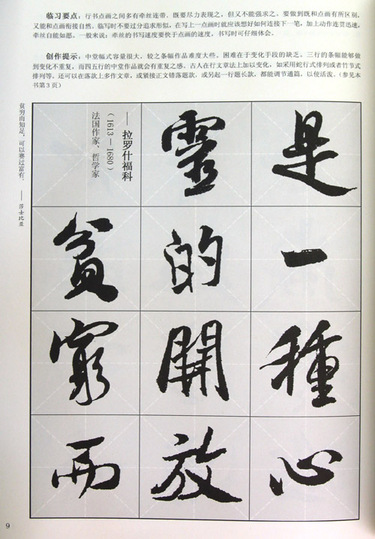 临习要点：行书点画之间多有牵丝连带，既要尽力表现之，但又不能强求之，要做到既和点画有所区别，
又能和点画衔接自然。临写时不要过分追求形似，在写上一点画时就应该想好如何连接下一笔，加上动作连贯迅速，
牵丝自能如愿。一般来说：牵丝的书写速度要快于点画的速度，书写时可仔细体会。
创作提示：中堂幅式容量很大，较之条幅作品难度大些，困难在于变化手段的缺乏，三行的条幅能够做
到变化不重复，而四五行的中堂作品就会有重复之感。古人在行文章法上加以变化，如采用蛇行式排列或者竹节式
排列等。还可以在落款上多作文章，或紧接正文错落题款，或另起一行题长款，都能调节通篇，以使活泼。（参见本
书第3页）
是一種心
靈的開放
——拉罗什福科
（1613—1680）
法国作家、哲学家
貧窮而
贫穷而知足，可以赛过富有。
——莎士比亚
9